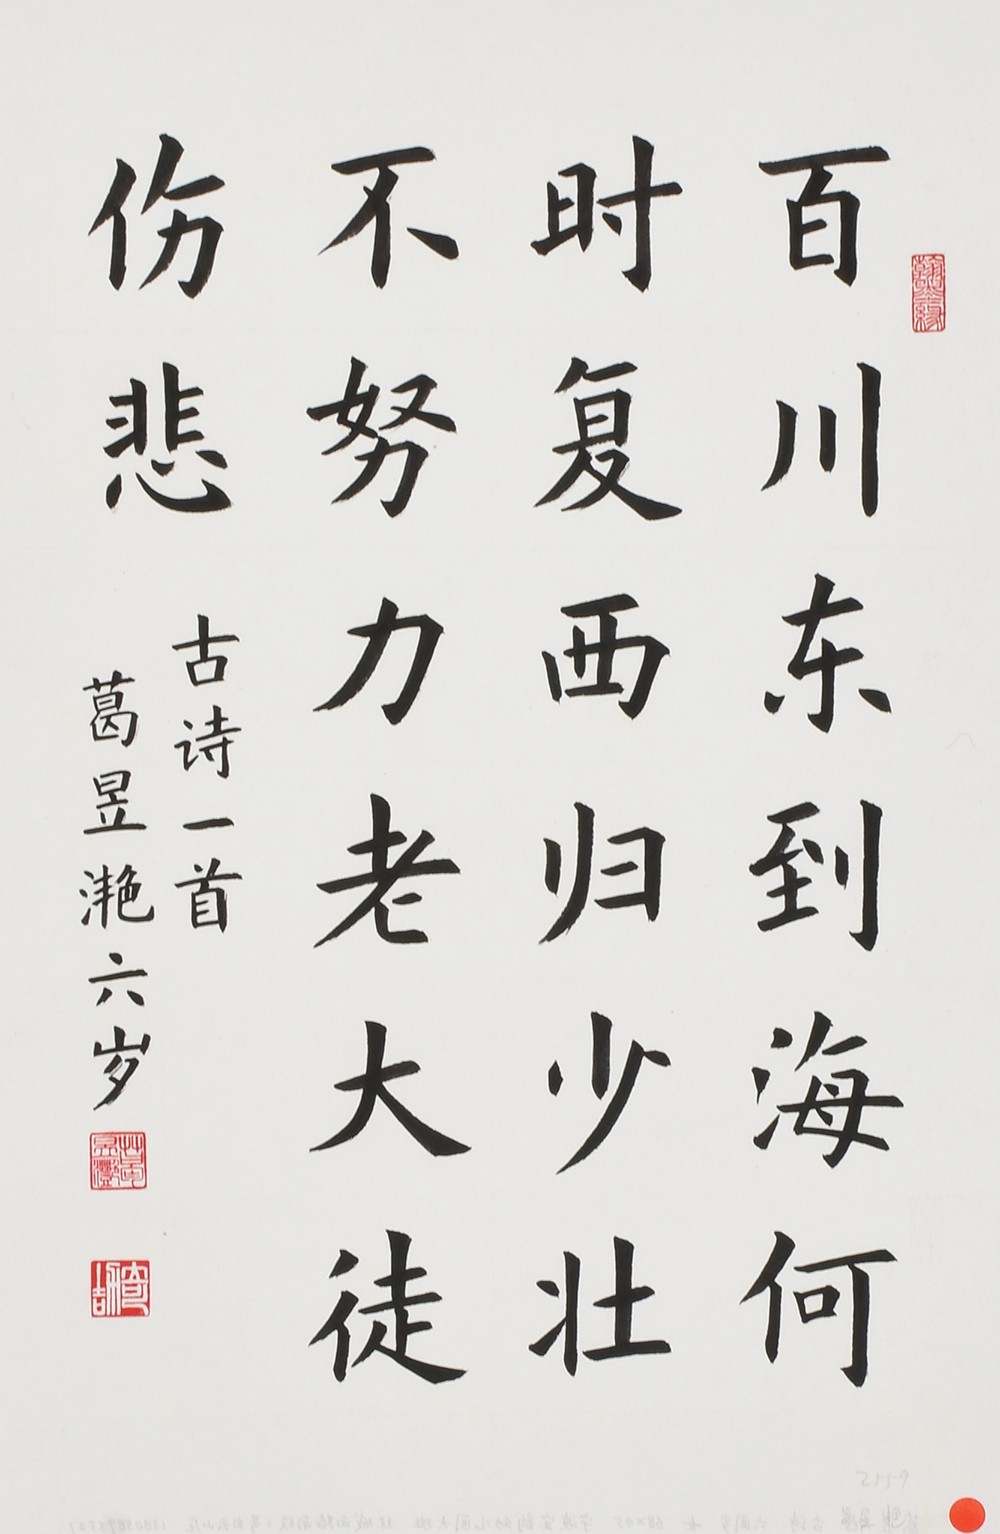 百川东到海何
时复西归少壮
不努力老大徒
伤悲
古诗一首
葛昱滟六岁